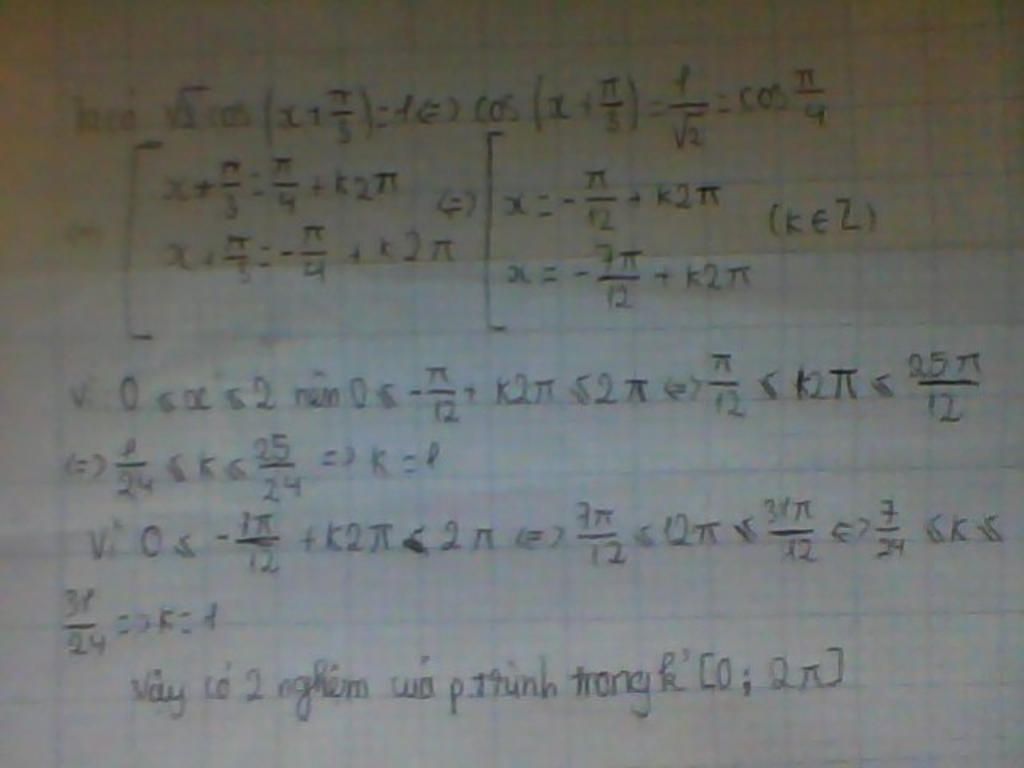 Ta có √2 cos (x + π/3) = 1 <=> cos (x + π/3) = 1/√2 = cos π/4
<=> [ x + π/3 = π/4 + k2π <=> [ x = -π/12 + k2π (k ∈ Z)
x + π/3 = -π/4 + k2π x = -7π/12 + k2π
Vì 0 ≤ x ≤ 2 nên 0 ≤ -π/12 + k2π ≤ 2π <=> π/12 ≤ k2π ≤ 25π/12
<=> 1/24 ≤ k ≤ 25/24 => k = 1
Vì 0 ≤ -7π/12 + k2π ≤ 2π <=> 7π/12 ≤ 12π ≤ 31π/12 <=> 7/24 ≤ k ≤
31/24 => k = 1
Vậy có 2 nghiệm của p.trình trong k' [0; 2π]